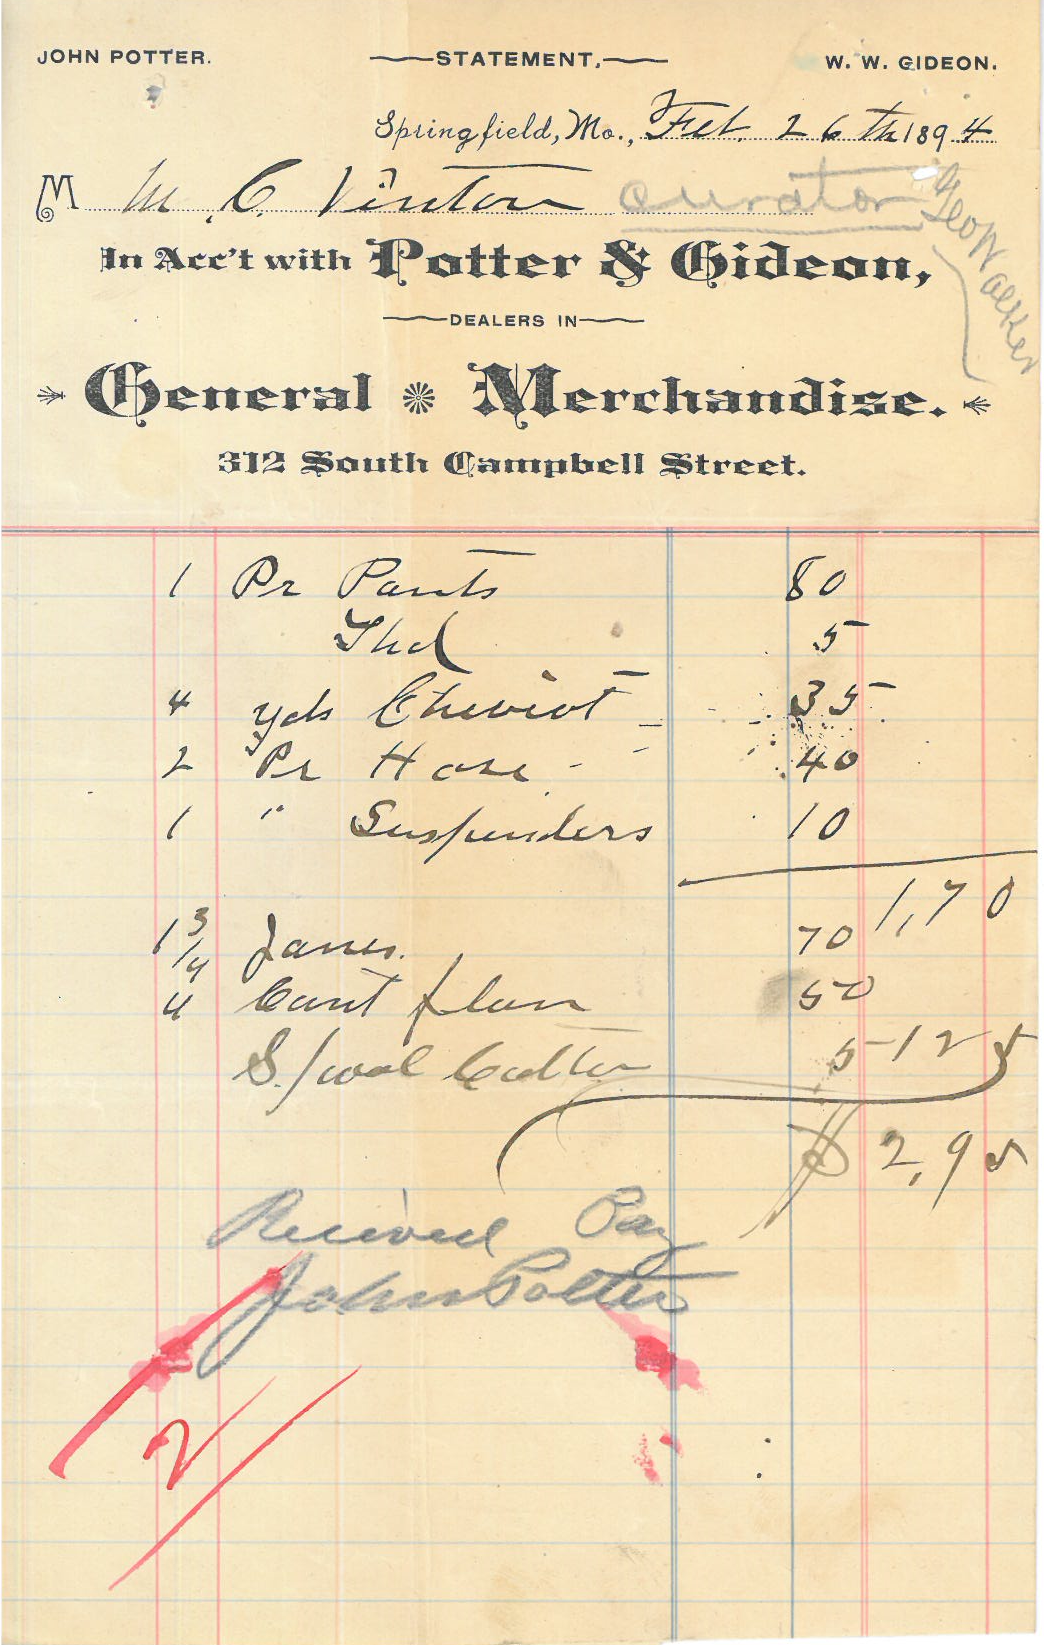 JOHN POTTER. STATEMENT. W. W. GIDEON.
Springfield, Mo., Feb. 26th 1894
M M. C. Vinton curator Geo Walker
In Acc't with Potter & Gideon,
DEALERS IN
General Merchandise.
312 South Campbell Street.
1 Pr Pants 80
Thd 5
4 yds Cheviot 35
2 Pr Hose 40
1 " Suspenders 10
1,70
1 3/4 Janes. 70
4 Cant flan 50
Spool Cotton 5 125
$ 2,95
Recieved Pay
John Potter
2